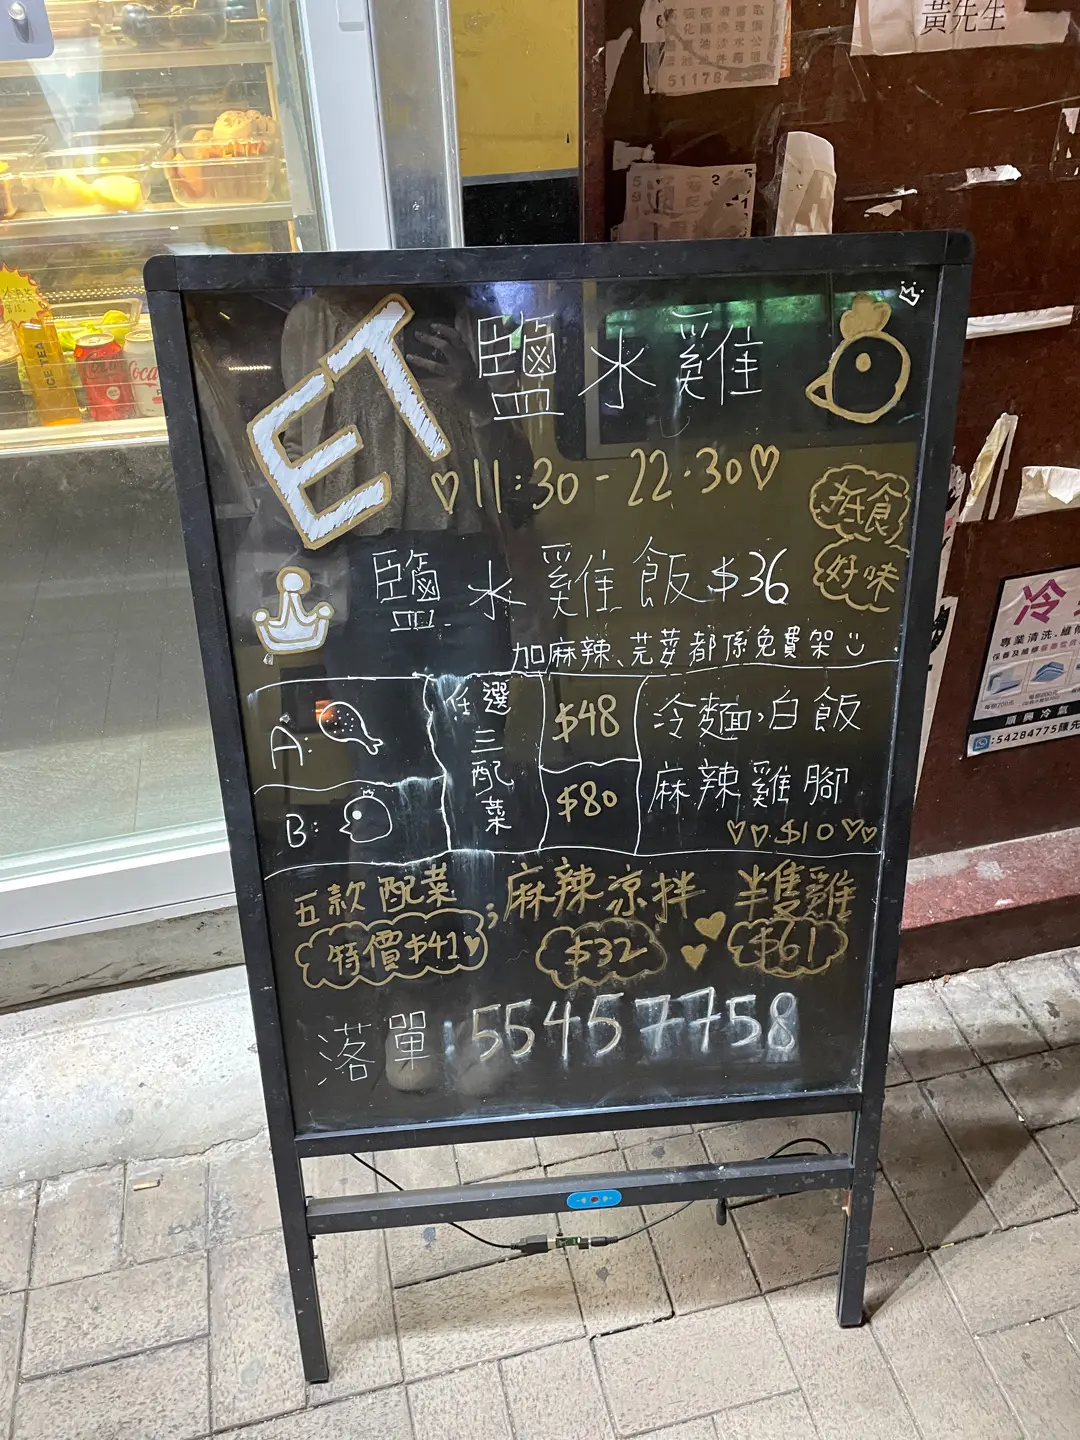 黃先生
51178
ICE TEA
Coca
ET
鹽水雞
♡11:30-22.30♡
抵食
好味
鹽水雞飯$36
加麻辣、芫荽都係免費架
A:
B:
任選三配菜
$48
$80
冷麵,白飯
麻辣雞腳
♡♡$10♡♡
五款配菜
特價$41
;麻辣涼拌
$32
半隻雞
$61
落單:55457758
冷
專業清洗.維修
順興冷氣
:54284775陳先